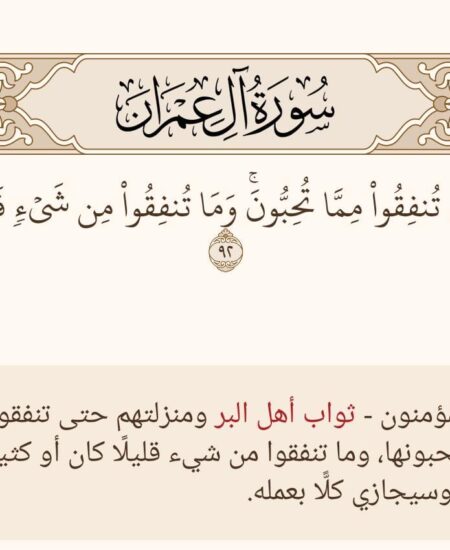 سُورَةُ آلِ عِمْرَانَ
تُنفِقُوا۟ مِمَّا تُحِبُّونَۚ وَمَا تُنفِقُوا۟ مِن شَىْءٍۢ
٩٢
ؤمنون - ثواب أهل البر ومنزلتهم حتى تنفقو
حبونها، وما تنفقوا من شيء قليلًا كان أو كثي
وسيجازي كلًّا بعمله.